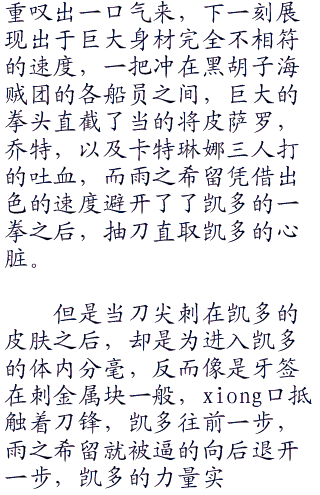 重叹出一口气来，下一刻展
现出于巨大身材完全不相符
的速度，一把冲在黑胡子海
贼团的各船员之间，巨大的
拳头直截了当的将皮萨罗，
乔特，以及卡特琳娜三人打
的吐血，而雨之希留凭借出
色的速度避开了了凯多的一
拳之后，抽刀直取凯多的心
脏。
但是当刀尖刺在凯多的
皮肤之后，却是为进入凯多
的体内分毫，反而像是牙签
在刺金属块一般，xiong口抵
触着刀锋，凯多往前一步，
雨之希留就被逼的向后退开
一步，凯多的力量实